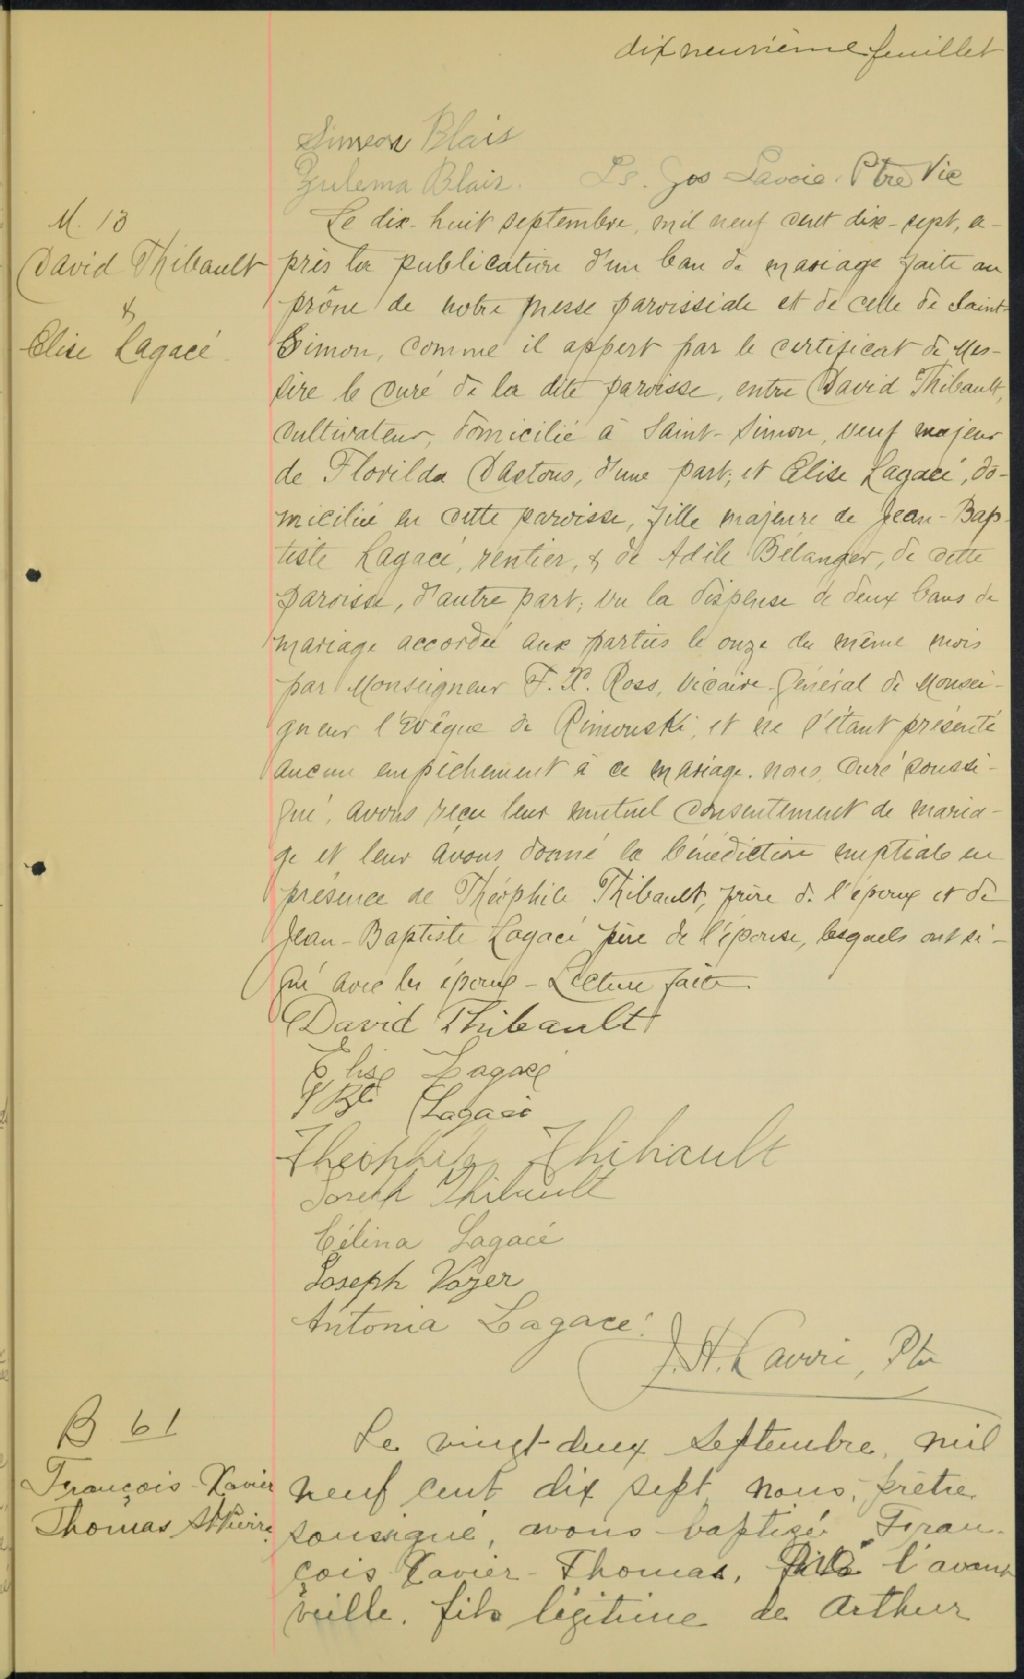 dix neuvième feuillet
Simeon Blais
Zulema Blais. Ls. Jos Lavoie. Ptre Vic
M. 13
David Thibault
&
Elise Lagacé
Le dix-huit septembre, mil neuf cent dix-sept, a-
près la publication d'un ban de mariage faite au
prône de notre messe paroissiale et de celle de Saint-
Simon, comme il appert par le certificat de Mes-
sire le curé de la dite paroisse, entre David Thibault,
cultivateur, domicilié à Saint-Simon, veuf majeur
de Florilda Dastous, d'une part; et Elise Lagacé, do-
miciliée en cette paroisse, fille majeure de Jean-Bap-
tiste Lagacé, rentier, & de Adèle Bélanger, de cette
paroisse, d'autre part; vu la dispense de deux bans de
mariage accordée aux parties le onze du même mois
par Monseigneur F. X. Ross, Vicaire-Général de Monsei-
gneur l'Evêque de Rimouski, et ne s'étant présenté
aucun empêchement à ce mariage. nous, curé soussi-
gné, avons reçu leur mutuel consentement de maria-
ge et leur avons donné la bénédiction nuptiale en
présence de Théophile Thibault, frère de l'époux et de
Jean-Baptiste Lagacé père de l'épouse, lesquels ont si-
gné avec les époux - Lecture faite.
David Thibault
Elise Lagacé
J Bte Lagacé
Theophile Thibault
Joseph Thibault
Célina Lagacé
Joseph Voyer
Antonia Lagacé
J. H. Lavoie, Ptre
B 61
François-Xavier
Thomas St Pierre.
Le vingt-deux Septembre, mil
neuf cent dix sept, nous, prêtre
soussigné, avons baptisé Fran-
çois Xavier-Thomas, l'avant
veille, fils légitime de Arthur